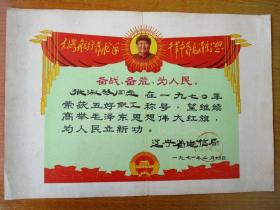 大海航行靠舵手
干革命靠毛泽东思想
备战、备荒、为人民。
张淑琴同志 在一九七〇年
荣获五好职工称号，望继续
高举毛泽东思想伟大红旗，
为人民立新功。
辽宁省电信局
一九七一年二月